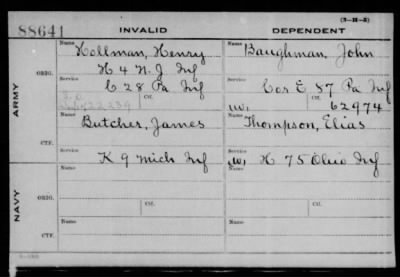 (3-H-5)
88641 INVALID DEPENDENT
ARMY
ORIG.
Name Hollman, Henry
Service H 4 N. J Inf
C 28 Pa Inf
Ctf.
Name Baughman, John
Service Cos E 87 Pa Inf
W. Ctf. 62974
CTF.
Name Butcher, James
Service K 9 Mich Inf
Name Thompson, Elias
Service W. H 75 Ohio Inf
NAVY
ORIG.
Name
Ctf.
Name
Ctf.
CTF.
Name
Name